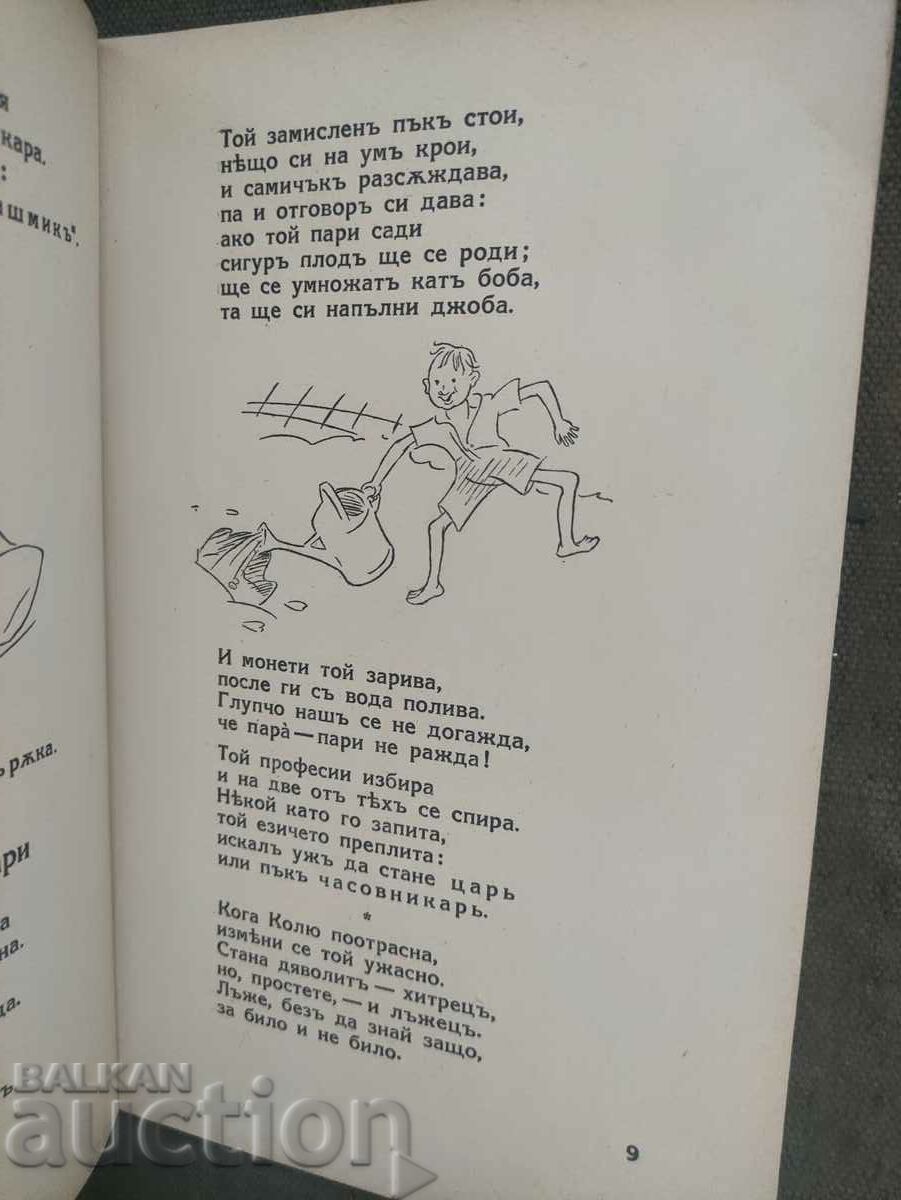 я
кара.
:
ашмикъ".
ържка.
ри
а
на.
да.
ъ.
Той замисленъ пъкъ стои,
нѣщо си на умъ крои,
и самичъкъ разсѫждава,
па и отговоръ си дава:
ако той пари сади
сигуръ плодъ ще се роди;
ще се умножатъ катъ боба,
та ще си напълни джоба.
И монети той зарива,
после ги съ вода полива.
Глупчо нашъ се не догажда,
че пара̀ — пари не ражда!
Той професии избира
и на две отъ тѣхъ се спира.
Нѣкой като го запита,
той езичето преплита:
искалъ ужъ да стане царь
или пъкъ часовникарь.
*
Кога Колю поотрасна,
измѣни се той ужасно.
Стана дяволитъ — хитрецъ,
но, простете, — и лъжецъ.
Лъже, безъ да знай защо,
за било и не било.
9
BALKAN
auction